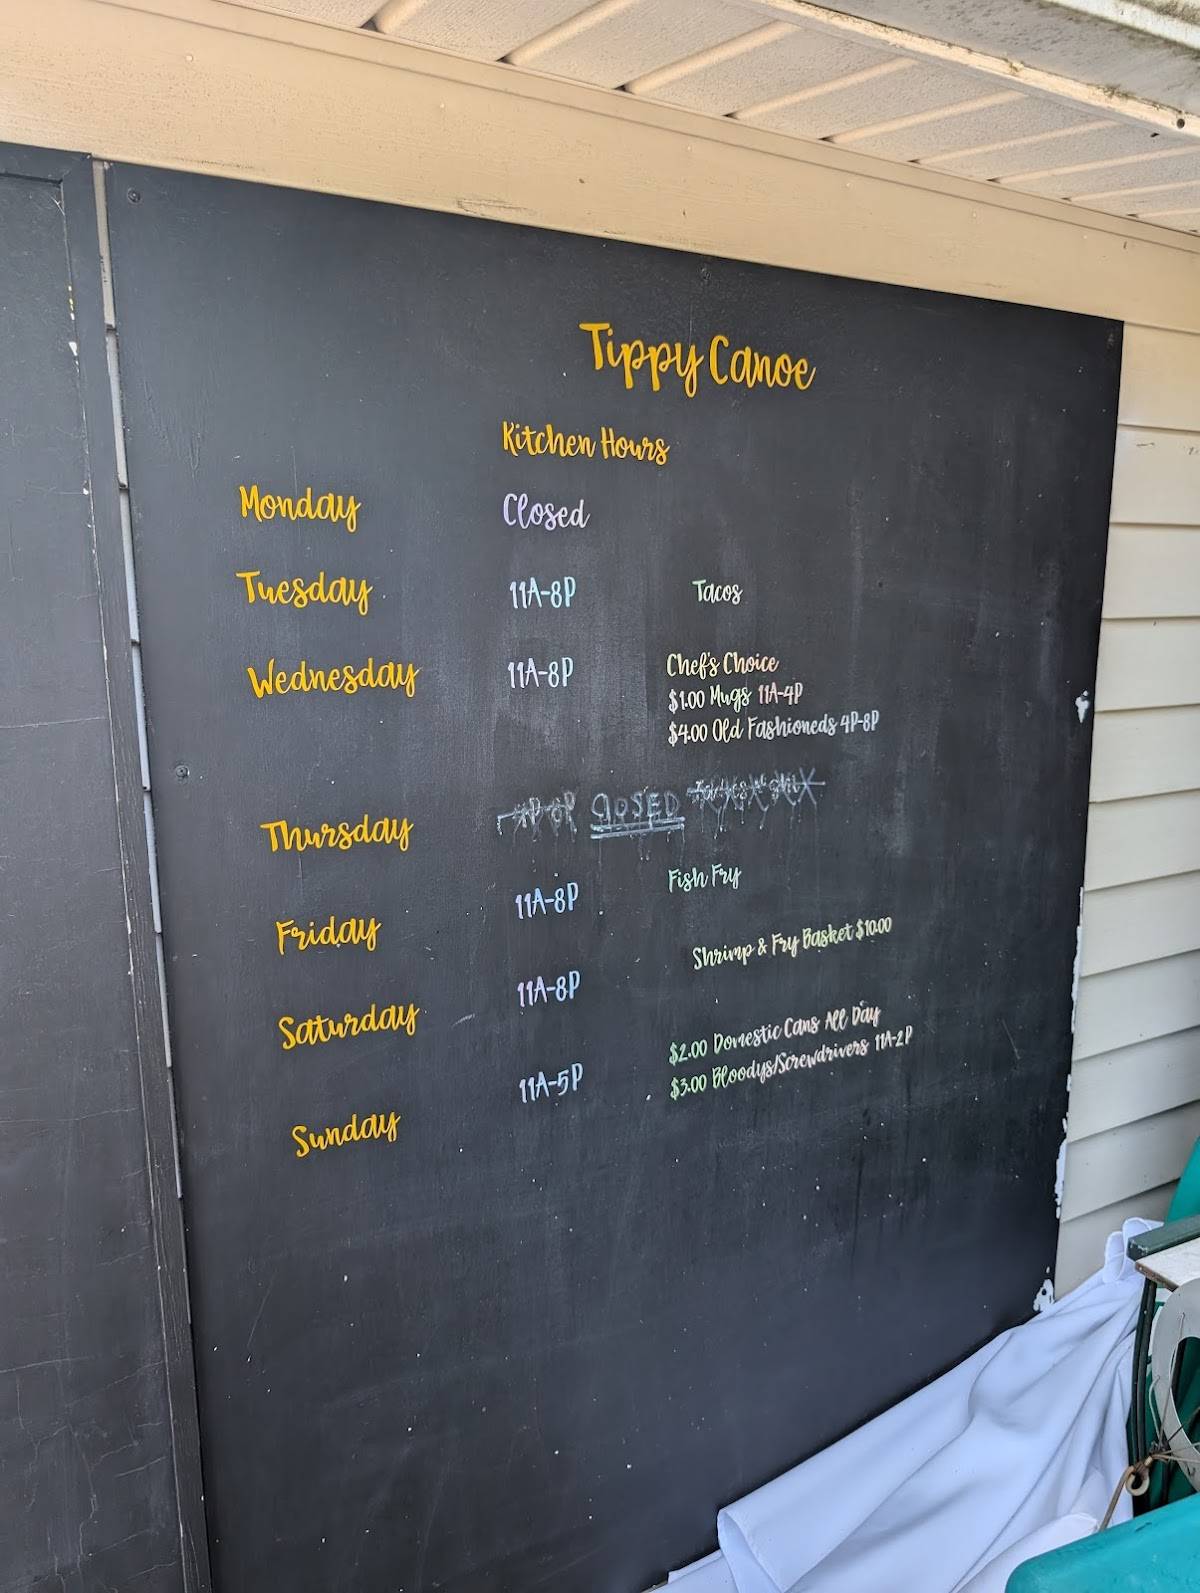 Tippy Canoe
Kitchen Hours
Monday Closed
Tuesday 11A-8P Tacos
Wednesday 11A-8P Chef's Choice
$1.00 Mugs 11A-4P
$4.00 Old Fashioneds 4P-8P
Thursday CLOSED
Friday 11A-8P Fish Fry
Saturday 11A-8P Shrimp & Fry Basket $10.00
Sunday 11A-5P $2.00 Domestic Cans All Day
$3.00 Bloodys/Screwdrivers 11A-2P